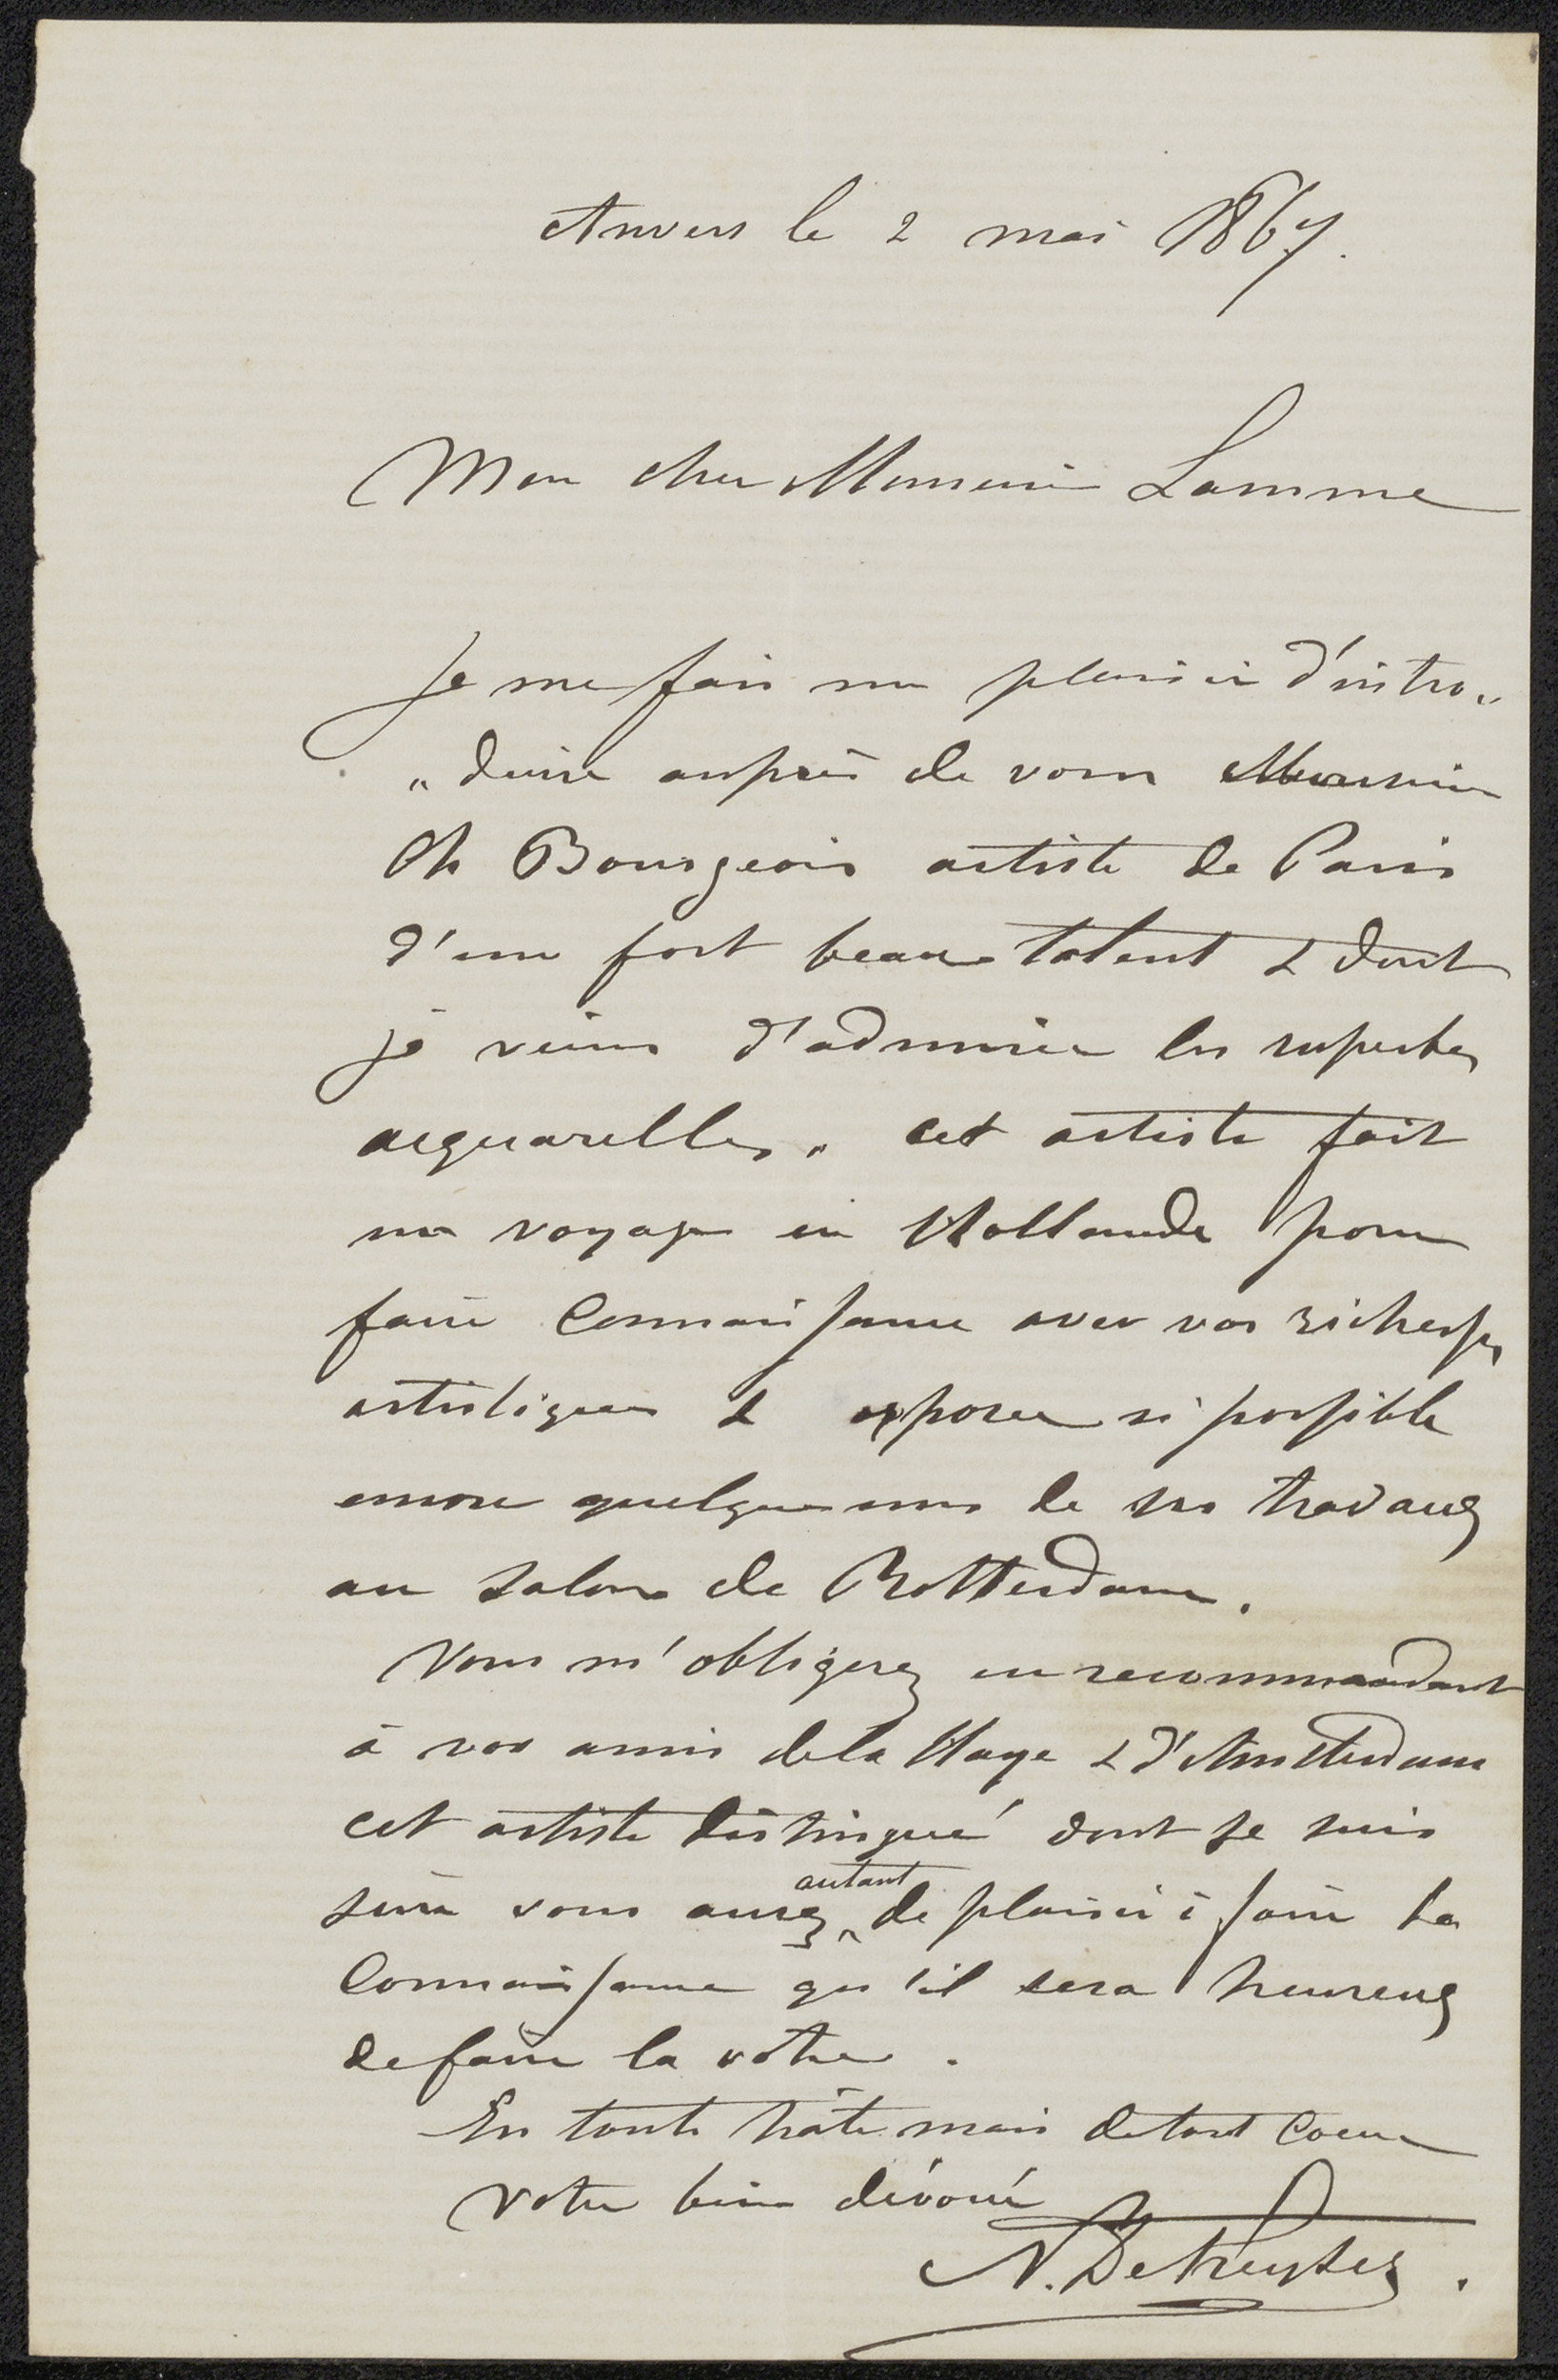 Anvers le 2 mai 1867.
Mon cher Monsieur Lamme
Je me fais un plaisir d'intro„
„duire auprès de vous Monsieur
Ch Bourgeois artiste de Paris
d'un fort beau talent & dont
je viens d'admirer les superbes
acquarelles. cet artiste fait
un voyage en Hollande pour
faire connaissance avec vos richesses
artistiques & exposer si possible
encore quelques uns de ses travaux
au salon de Rotterdam.
Vous m'obligerez en recommandant
à vos amis de la Haye & d'Amsterdam
cet artiste distingué dont je suis
sûre vous aurez autant de plaisir à faire la
connaissance qu'il sera heureux
de faire la votre.
En toute hâte mais de tout coeur
votre bien dévoué
N. De Keyser.